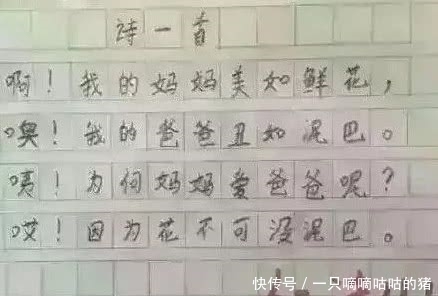 诗一首
啊！我的妈妈美如鲜花，
噢！我的爸爸丑如泥巴。
咦！为何妈妈爱爸爸呢？
哎！因为花不可没泥巴。
快传号/一只嘀嘀咕咕的猪